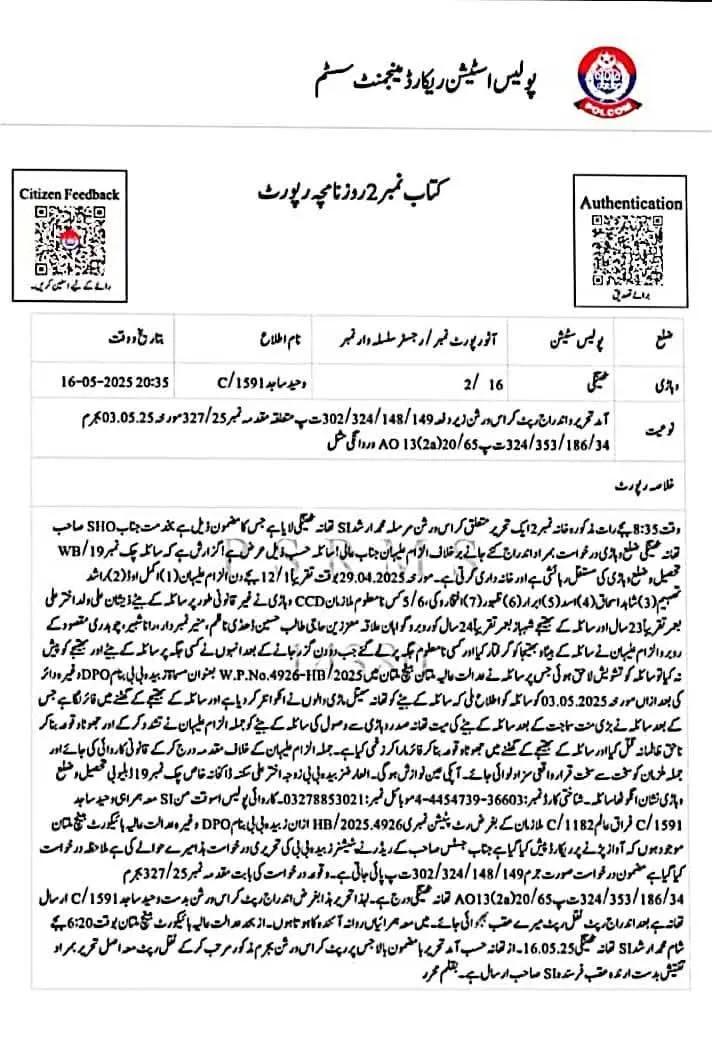 پولیس اسٹیشن ریکارڈ مینجمنٹ سسٹم
POLCOM
Citizen Feedback
رائے کے لیے اسکین کریں۔
کتاب نمبر 2 روزنامچہ رپورٹ
Authentication
برائے تصدیق
ضلع پولیس سٹیشن آئو رپورٹ نمبر / رجسٹر سلسلہ وار نمبر نام اطلاع تاریخ و وقت
وہاڑی ٹھینگی 16 /2 وحید ساجد 1591/C 16-05-2025 20:35
نوعیت
آمد تحریر و اندراج رپٹ کراس ورشن زیر دفعہ 302/324/148/149 ت پ متعلقہ مقدمہ نمبر 327/25 مورخہ 03.05.25 بجرم
324/353/186/34 ت پ 20/65(2a)13 AO روانگی مثل
خلاصہ رپورٹ
وقت 8:35 بجے رات مذکورہ خانہ نمبر 2 ایک تحریر متعلق کراس ورشن مرسلہ محمد ارشد SI تھانہ ٹھینگی لایا ہے جس کا مضمون ذیل ہے بخدمت جناب SHO صاحب
تھانہ ٹھینگی ضلع وہاڑی درخواست بمراد اندراج کئے جانے برخلاف الزام علیہان جناب عالی! سائلہ حسب ذیل عرض ہے گزارش ہے کہ سائلہ چک نمبر 19/WB
تحصیل و ضلع وہاڑی کی مستقل رہائشی ہے اور خانہ داری کرتی ہے۔ مورخہ 29.04.2025 بوقت تقریباً 12/1 بجے دن الزام علیہان (1) اکمل (2)، راشد
(3) شاہد اسحاق (4) اسد (5) ابرار (6) ظہور (7) افتخار وکی، 5/6 کس نامعلوم ملازمان CCD وہاڑی نے غیر قانونی طور پر سائلہ کے بیٹے ذیشان علی ولد اختر علی
بعمر تقریباً 23 سال اور سائلہ کے بھتیجے شہباز بعمر تقریباً 24 سال کو روبرو گواہان علاقہ معززین حاجی طالب حسین ڈھڈی ناظم، منیر نمبردار، رانا شبیر، چوہدری مقصود کے
روبرو الزام علیہان نے سائلہ کے بیٹا و بھتیجا کو گرفتار کیا اور کسی نامعلوم جگہ پر لے گئے جب دو دن گزر جانے کے بعد انہوں نے کسی جگہ پر سائلہ کے بیٹے اور بھتیجے کو پیش
نہ کیا تو سائلہ کو تشویش لاحق ہوئی جس پر سائلہ نے عدالت عالیہ ملتان بینچ ملتان میں W.P.No.4926-HB/2025 بعنوان مسماۃ زبیدہ بی بی بنام DPO وغیرہ دائر
کی بعد ازاں مورخہ 03.05.2025 کو سائلہ کو اطلاع ملی کہ سائلہ کے بیٹے کو تھانہ ٹھینگی وہاڑی والوں نے انکوائنٹر کر دیا ہے اور سائلہ کے بھتیجے کے گھٹنے میں فائر لگا ہے جس
کے بعد سائلہ نے بڑی منت سماجت کے بعد سائلہ کے بیٹے کی میت تھانہ صدر وہاڑی سے وصول کی سائلہ کے بیٹے کو جملہ الزام علیہان نے تشدد کر کے اور جھوٹا وقوعہ بنا کر
ناحق ظالمانہ قتل کیا اور سائلہ کے بھتیجے کے گھٹنے میں جھوٹا وقوعہ بنا کر فائر مار کر زخمی کیا ہے۔ جملہ الزام علیہان کے خلاف مقدمہ درج کر کے قانونی کاروائی کی جائے اور
جملہ ملزمان کو سخت سے سخت قرار واقعی سزا دلوائی جائے۔ آپکی عین نوازش ہوگی۔ العارضہ زبیدہ بی بی زوجہ اختر علی سکنہ ڈاکخانہ خاص چک نمبر 19 ڈبلیو بی تحصیل و ضلع
وہاڑی نشان انگوٹھا سائلہ۔ شناختی کارڈ نمبر: 36603-4454739-4 موبائل نمبر: 03278853021۔ کاروائی پولیس اسوقت من SI معہ ہمراہی وحید ساجد
1591/C فراق عالم 1182/C ملازمان کے بغرض رٹ پٹیشن نمبری 4926.HB/2025 ازان زبیدہ بی بی بنام DPO وغیرہ عدالت عالیہ ہائیکورٹ بینچ ملتان
موجود ہوں کہ آواز پڑنے پر ریکارڈ پیش کیا گیا ہے جناب جسٹس صاحب کے ریڈر نے پٹیشنر زبیدہ بی بی کی تحریری درخواست ہذا میرے حوالے کی ہے ملاحظہ درخواست
کیا گیا ہے مضمون درخواست صورت جرم 302/324/148/149 ت پ پائی جاتی ہے۔ وقوعہ درخواست کی بابت مقدمہ نمبر 327/25 بجرم
324/353/186/34 ت پ 20/65(2a)AO13 تھانہ ٹھینگی درج ہے۔ لہذا تحریر ہذا بغرض اندراج رپٹ کراس ورشن بدست وحید ساجد 1591/C ارسال
تھانہ ہے بعد اندراج رپٹ نقل رپٹ میرے عقب بھجوائی جائے۔ میں معہ ہمراہیاں روانہ آئندہ کا ہوتا ہوں۔ از بعد عدالت عالیہ ہائیکورٹ بینچ ملتان بوقت 6:20 بجے
شام محمد ارشد SI تھانہ ٹھینگی 16.05.25۔ از تھانہ حسب آمد تحریر با مضمون بالا جس پر رپٹ کراس ورشن بجرم مذکور مرتب کر کے نقل رپٹ معہ اصل تحریر بمراد
تفتیش بدست ارندہ عقب فرسندہ SI صاحب ارسال ہے۔ بقلم محرر
PSRMS